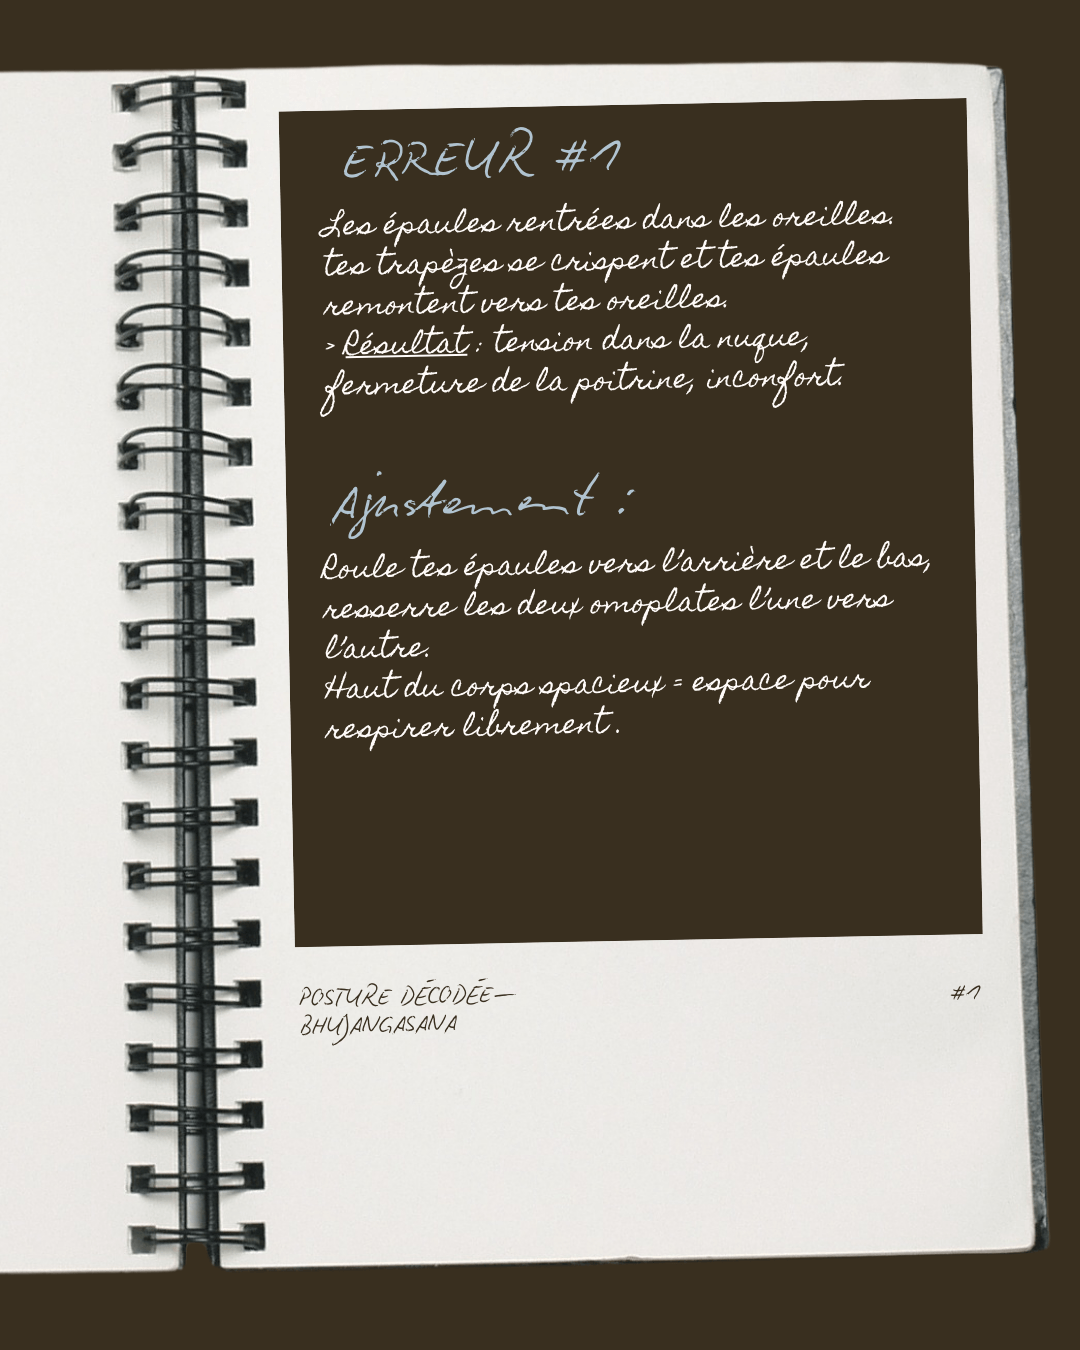 ERREUR #1
Les épaules rentrées dans les oreilles.
tes trapèzes se crispent et tes épaules
remontent vers tes oreilles.
> Résultat : tension dans la nuque,
fermeture de la poitrine, inconfort.
Ajustement :
Roule tes épaules vers l'arrière et le bas,
resserre les deux omoplates l'une vers
l'autre.
Haut du corps spacieux = espace pour
respirer librement.
POSTURE DÉCODÉE—
BHUJANGASANA
#1